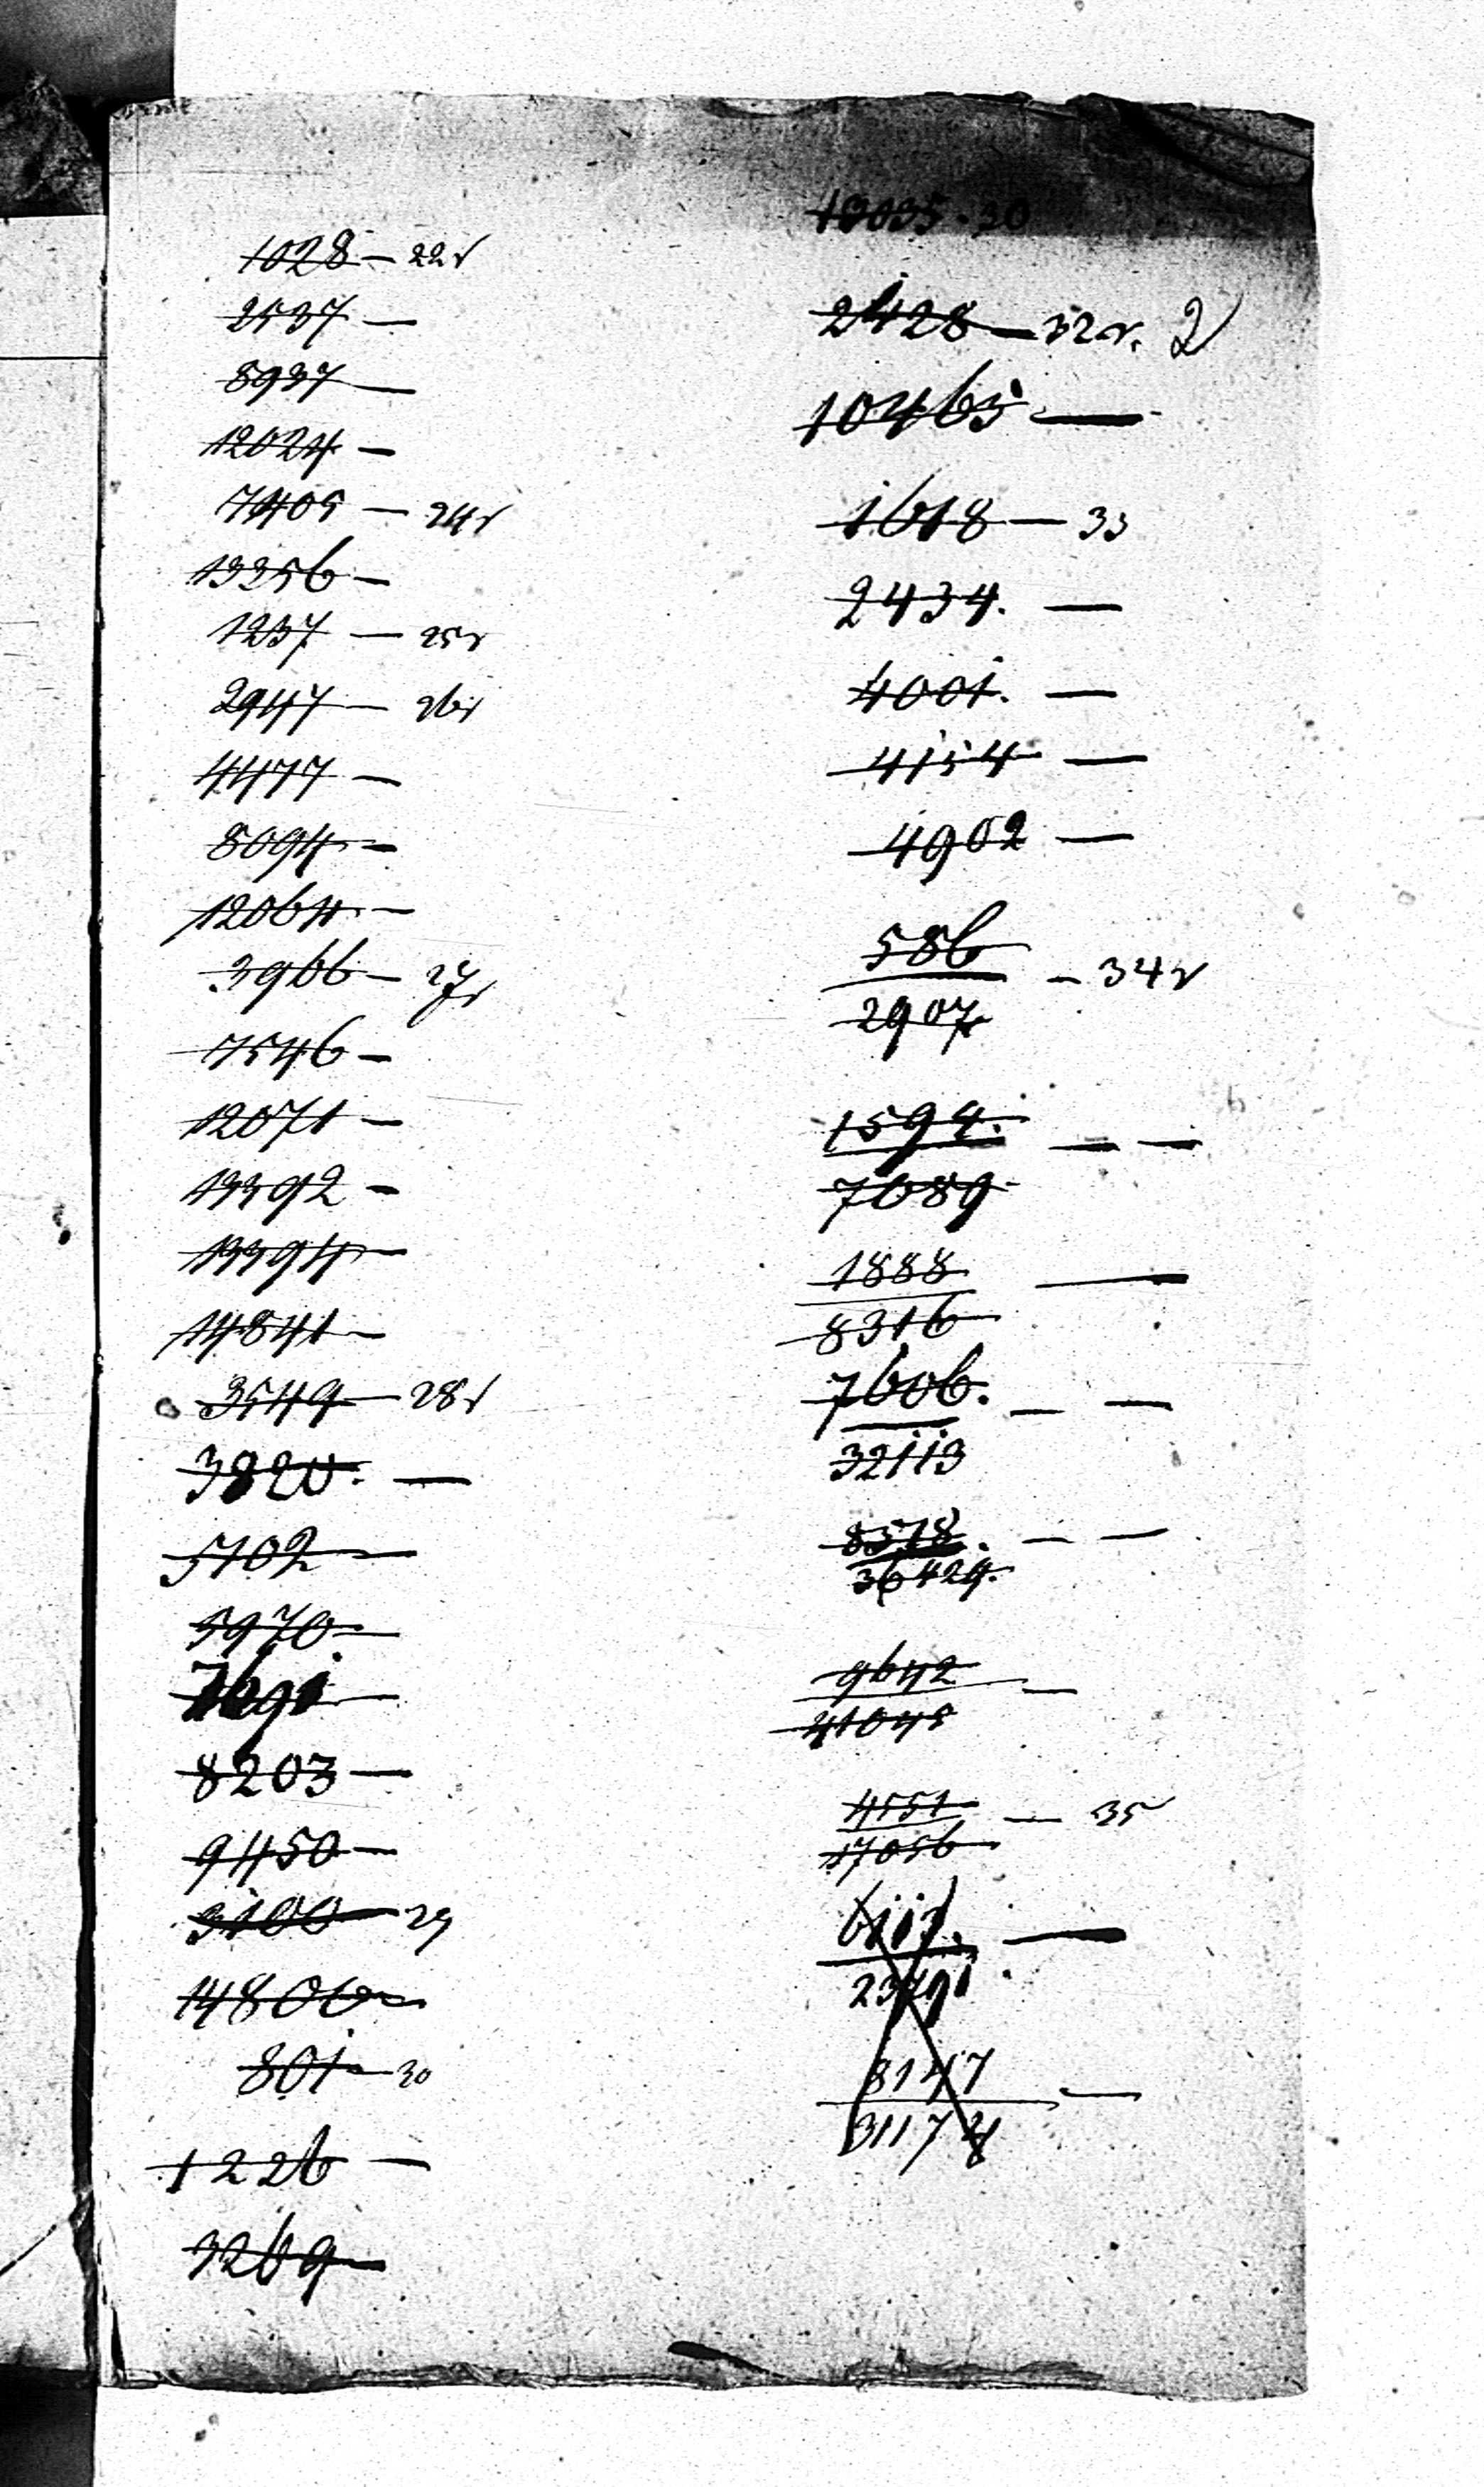 1028 — 22r
2537 —
8937 —
12024 —
7405 — 24r
13256 —
1237 — 25r
2947 — 26r
4477 —
8094 —
12064 —
3966 — 27r
7546 —
12071 —
13392 —
13394 —
14841 —
3549 — 28r
3820. —
5102 —
5970 —
7691 —
8203 —
9450 —
3100 — 29
14806 —
801 — 30
1226 —
3269 —
2428 — 32r. 2
10465 —
1618 — 33
2434. —
4001. —
4154 —
4902 —
586 — 34r
2907
1594. — —
7089
1888 —
8316
7606. — —
32113
8578. — —
36429.
9642 —
41045
4551 — 35
17056
—
8147 —